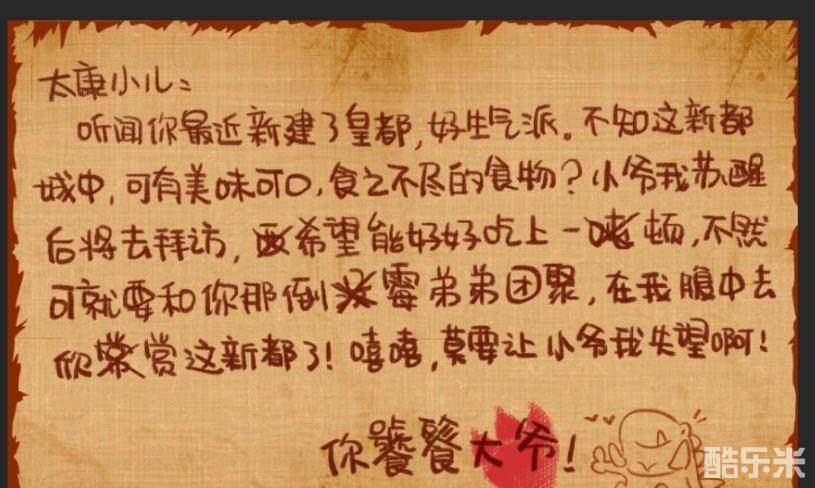 太康小儿：
听闻你最近新建了皇都，好生气派。不知这新都
城中，可有美味可口，食之不尽的食物？小爷我苏醒
后将去拜访，希望能好好吃上一顿，不然
可就要和你那倒霉弟弟团聚，在我腹中去
欣赏这新都了！嘻嘻，莫要让小爷我失望啊！
你饕餮大爷！
酷乐米